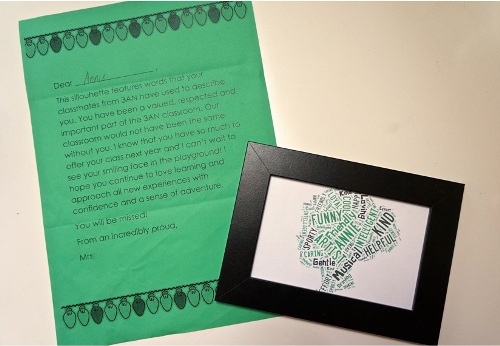 Dear Annie,
The silhouette features words that your
classmates from 3AN have used to describe
you. You have been a valued, respected and
important part of the 3AN classroom. Our
classroom would not have been the same
without you. I know that you have so much to
offer your class next year and I can't wait to
see your smiling face in the playground! I
hope you continue to love learning and
approach all new experiences with
confidence and a sense of adventure.
You will be missed!
From an incredibly proud,
Mrs
FUNNY
ANNIE
KIND
INTELLIGENT
HELPFUL
SPORTY
CARING
Gentle
Musical
COOL